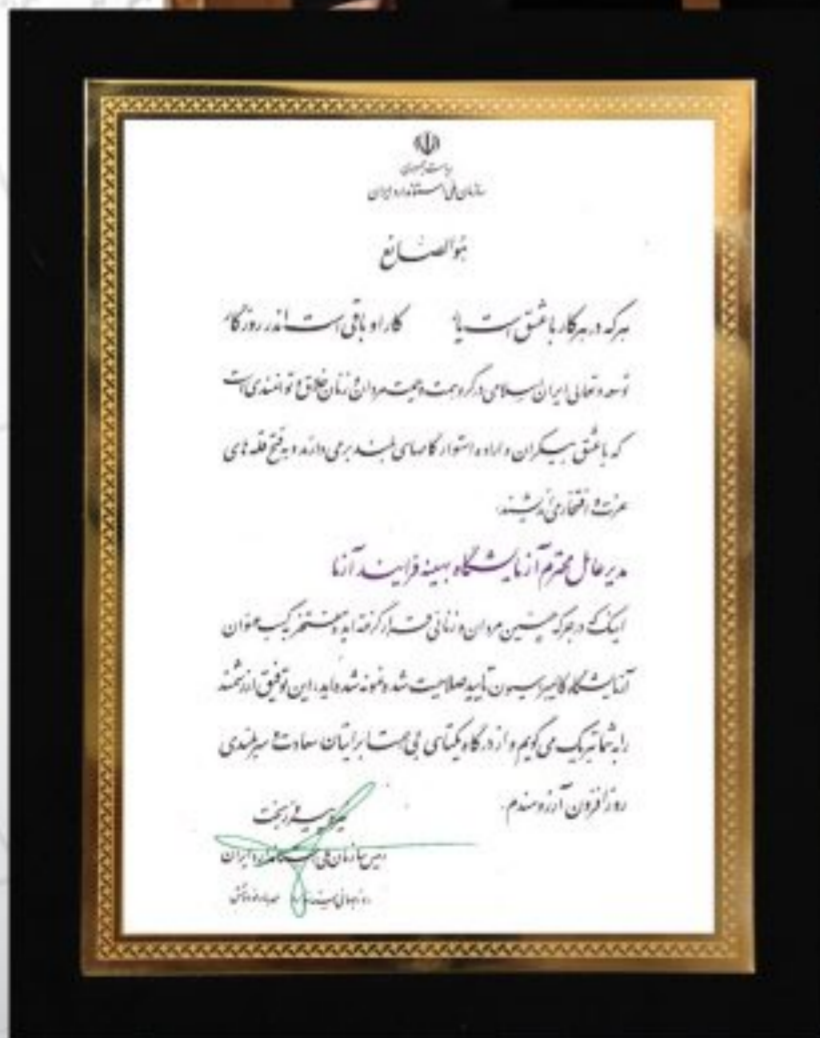 ریاست جمهوری
سازمان ملی استاندارد ایران
هوالصانع
هرکه در هر کار با عشق است یار کار او باقی است اندر روزگار
توسعه و تعالی ایران اسلامی در گرو همت و حمیت مردان و زنان خلاق و توانمندی است
که با عشق بیکران و اراده استوار گامهای بلند برمی دارند و به فتح قله های
عزت و افتخار می اندیشند.
مدیرعامل محترم آزمایشگاه بهینه فرایند آزما
اینک که در جرگه چنین مردان و زنانی قرار گرفته اید و مفتخر به کسب عنوان
آزمایشگاه کالیبراسیون تایید صلاحیت شده نمونه شده اید، این توفیق ارزشمند
را به شما تبریک می گویم و از درگاه یکتای بی همتا برایتان سعادت و سربلندی
روزافزون آرزومندم.
نیره پیروزبخت
رییس سازمان ملی استاندارد ایران
روز جهانی استاندارد